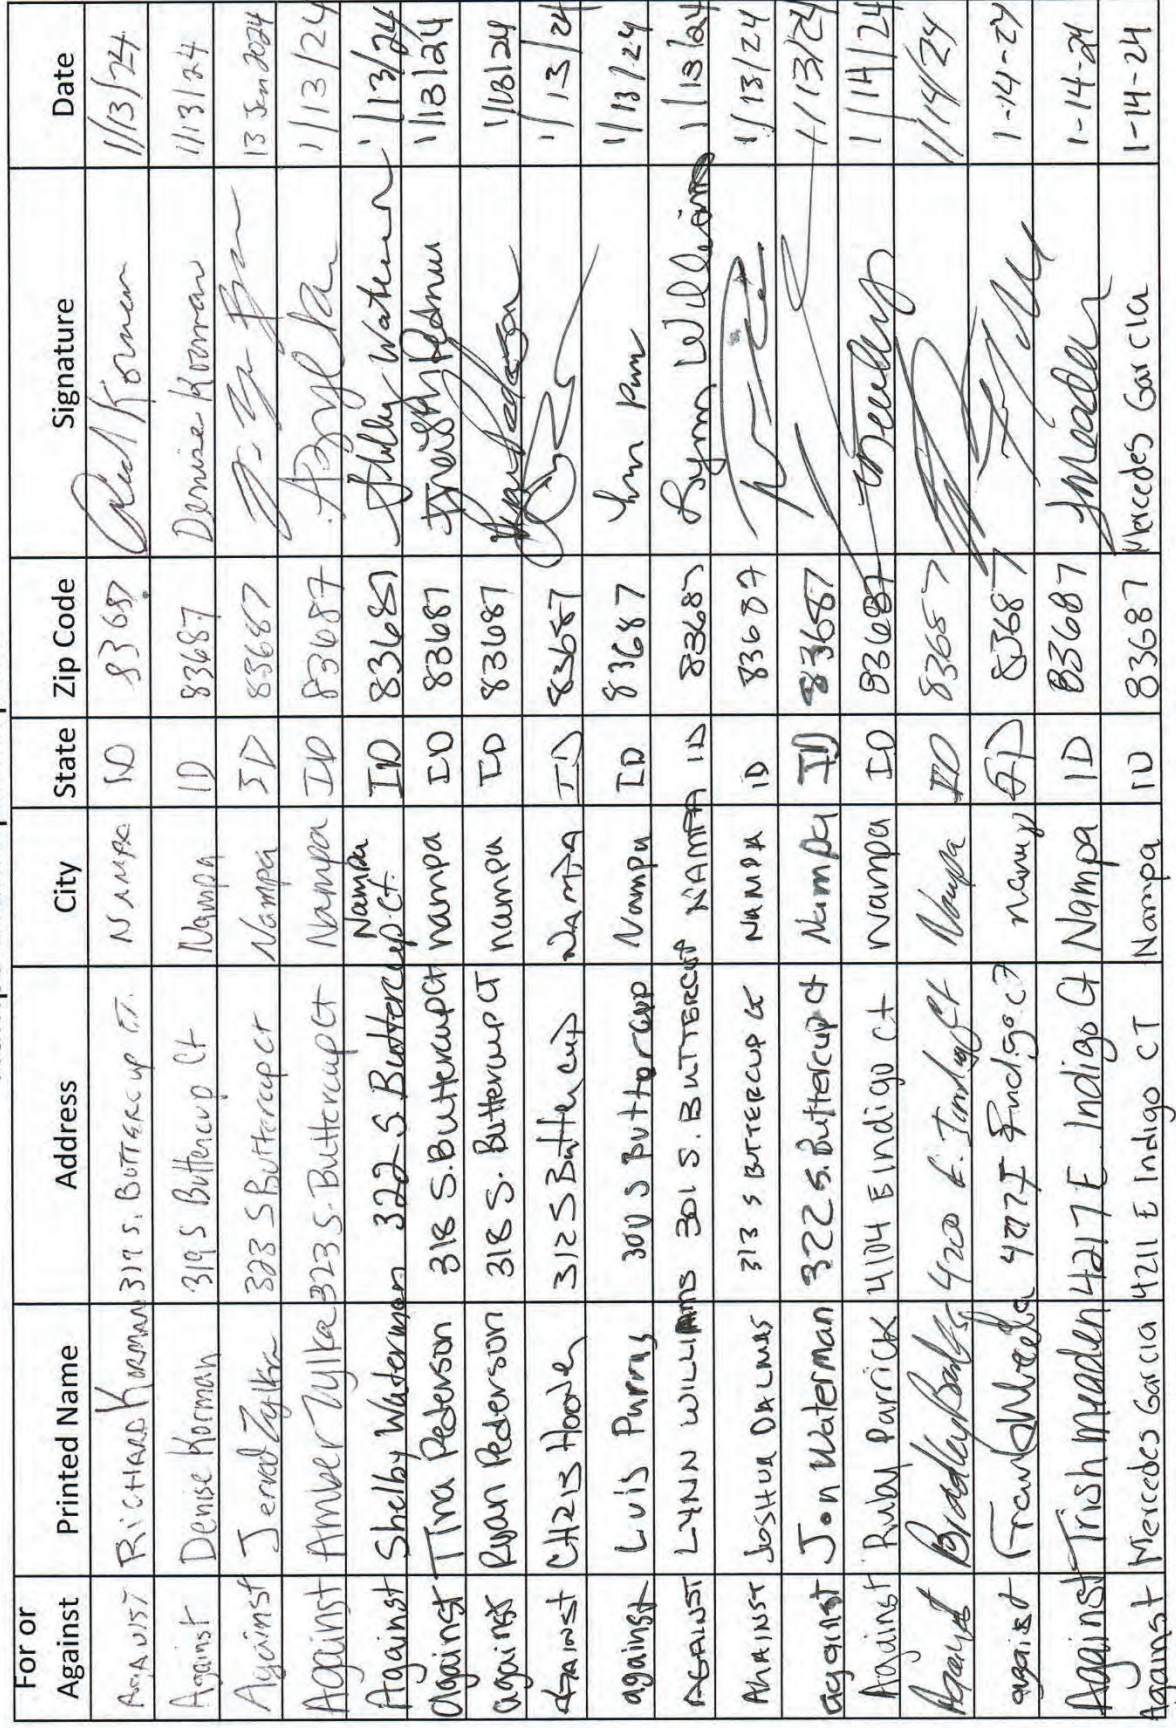 For or Against Printed Name Address City State Zip Code Signature Date
AGAINST RICHARD KORMAN 319 S. BUTTERCUP CT. NAMPA ID 83687 Korman 1/13/24
Against Denise Korman 319 S Buttercup Ct Nampa ID 83687 Denise Korman 1/13/24
Against Jerred Zylka 323 S Buttercup ct Nampa ID 83687 13 Jan 2024
Against Amber Zylka 323 S. Buttercup Ct Nampa ID 83687 1/13/24
Against Shelby Waterman 322 S. Buttercup Ct. Nampa ID 83687 Shelby Waterman 1/13/24
against Tina Pederson 318 S. Buttercup Ct nampa ID 83687 1/13/24
against Ryan Pederson 318 S. Buttercup CT nampa ID 83687 1/13/24
AGAINST 312 S Buttercup NAMPA ID 83687 1/13/24
against Luis 300 S Buttercup Nampa ID 83687 1/13/24
AGAINST LYNN WILLIAMS 301 S. BUTTERCUP NAMPA ID 83687 Lynn Williams 1/13/24
AGAINST JOSHUA 313 S BUTTERCUP Ct NAMPA ID 83687 1/13/24
against Jon Waterman 322 S. Buttercup ct Nampa ID 83687 1/13/24
Against Ruby Parrick 4104 E Indigo ct Nampa ID 83687 1/14/24
Against Bradley E. Indigo Ct Nampa ID 83687 1/14/24
against Indigo ct nampa ID 83687 1-14-24
Against Trish Meaden 4217 E. Indigo Ct Nampa ID 83687 1-14-24
Against Mercedes Garcia 4211 E Indigo CT Nampa ID 83687 Mercedes Garcia 1-14-24